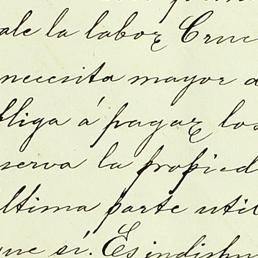 ale la labor Cruc
necesita mayor a
bliga á pagar los
serva la propied
ultima parte util
que sí. Es indispen